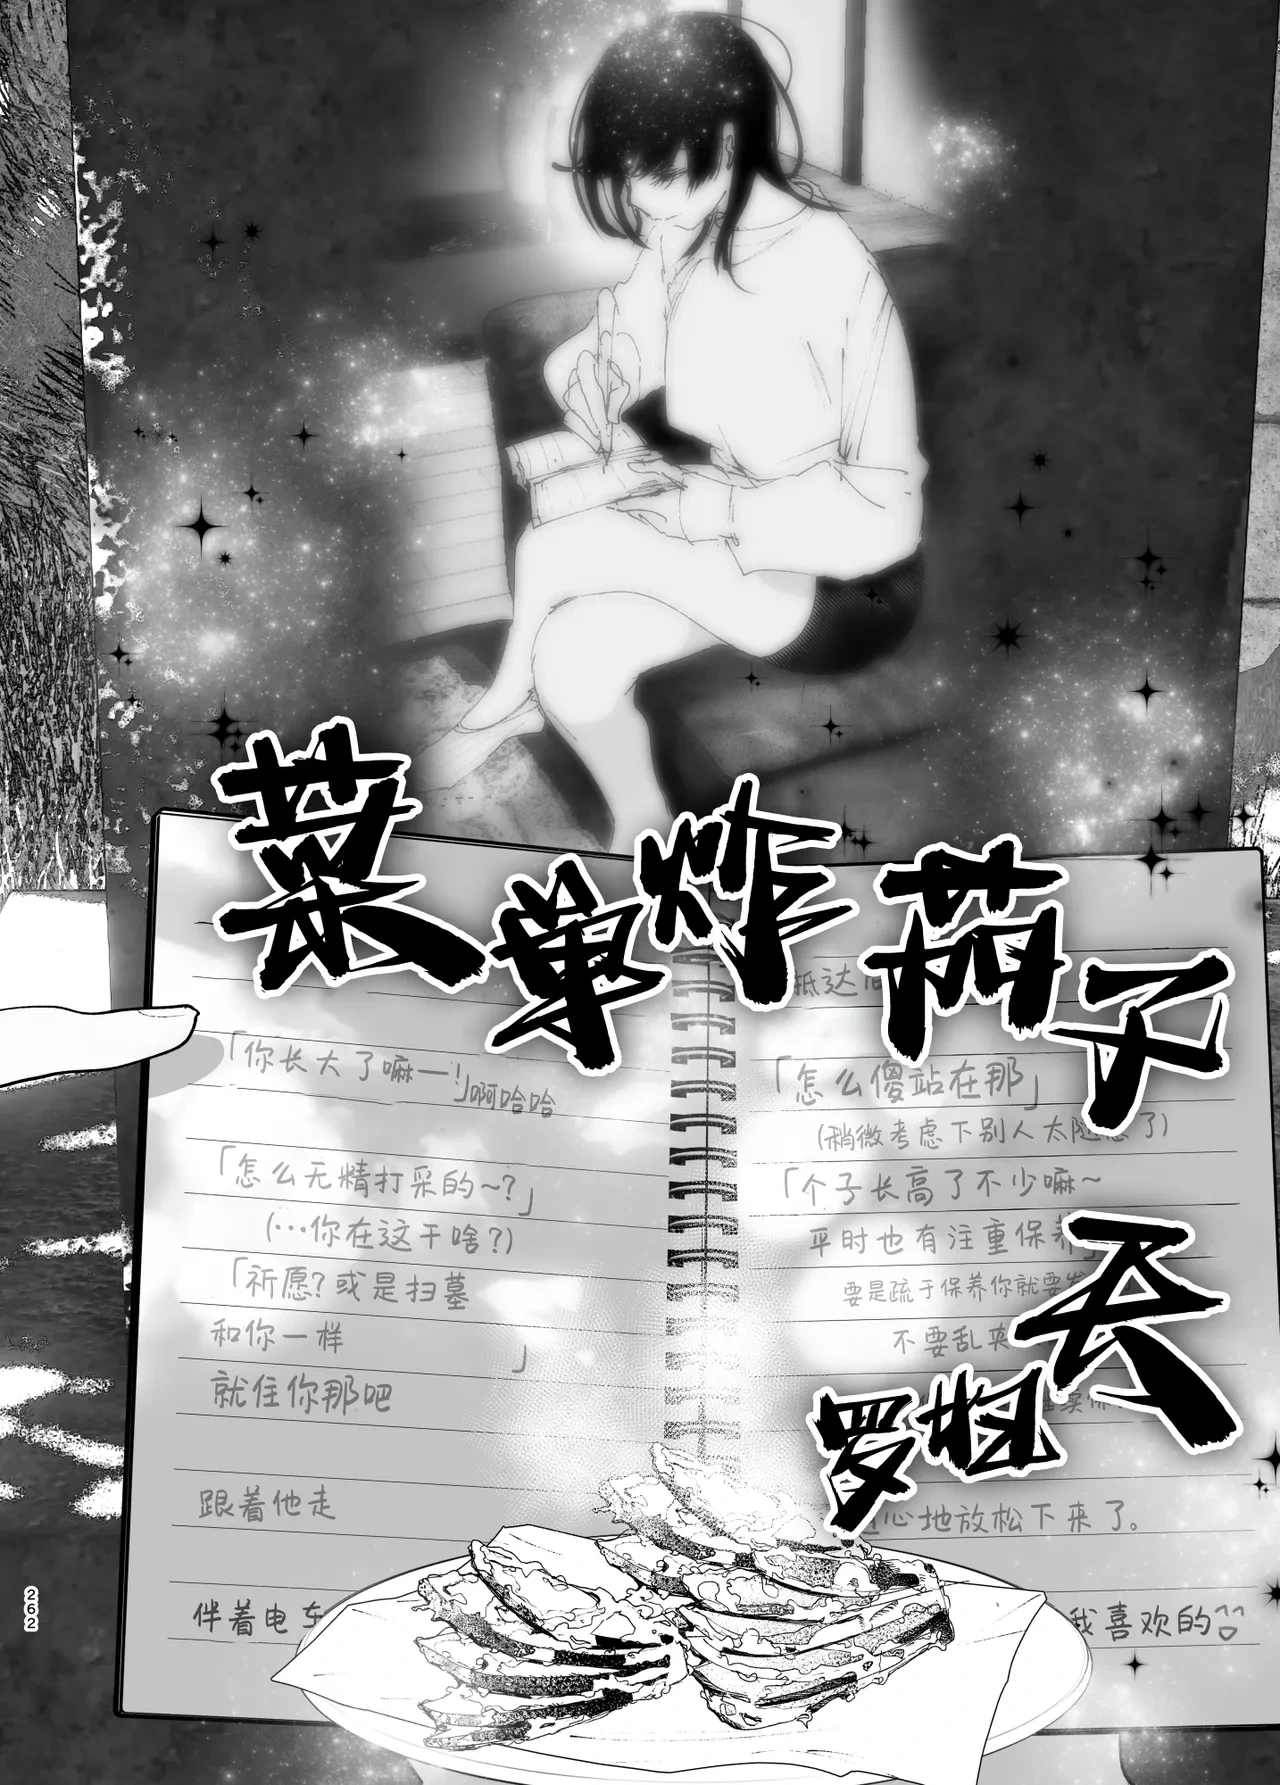 菜单炸茄子
天
罗妇
「你长大了嘛一!」啊哈哈
「怎么无精打采的~?」
(…你在这干啥?)
「祈愿?或是扫墓
和你一样」
就住你那吧
跟着他走
伴着电车
抵达后
「怎么傻站在那」
(稍微考虑下别人太随意了)
「个子长高了不少嘛~
平时也有注重保养
要是疏于保养你就要发
不要乱来
心地放松下来了。
我喜欢的
262